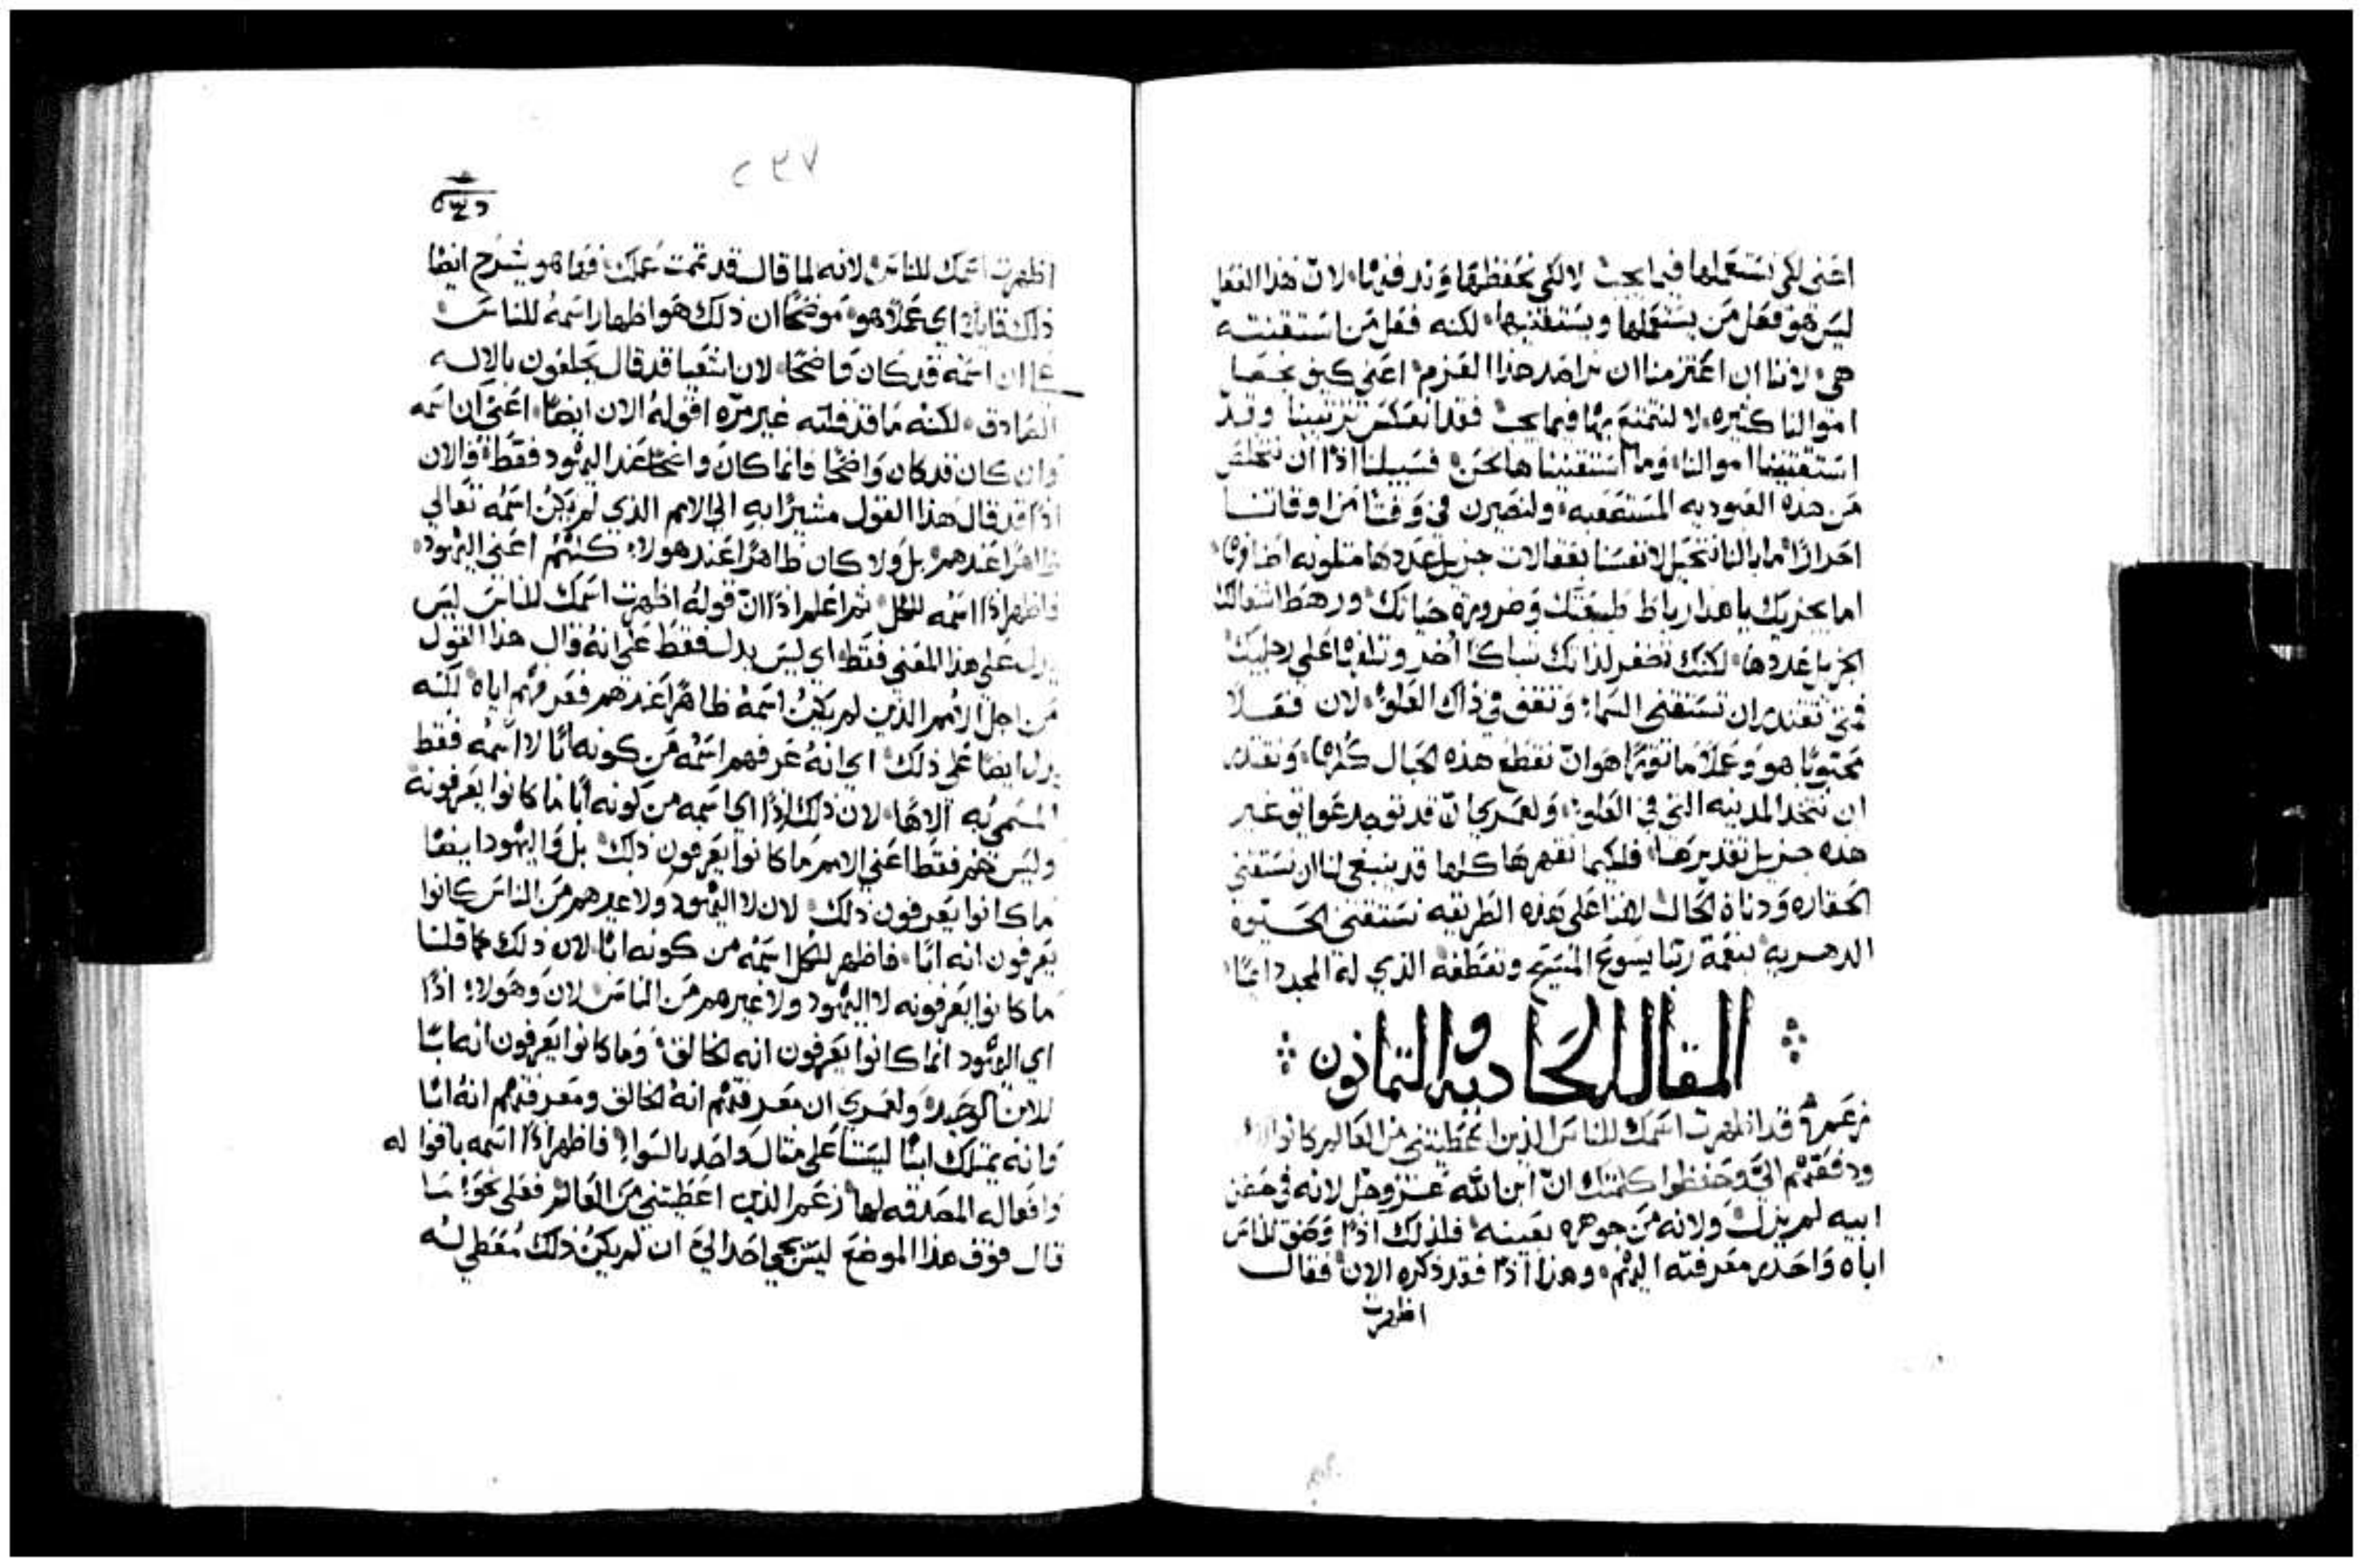 اعني لكي نستعملها فيما يجب لا لكي نحفظها وندفنها لان هذا الفعل
ليس هو فعل من يستعملها ويستقتنيها لكنه فعل من استقنته
هي لاننا ان اعتزمنا ان نراصد هذا العزم اعني كيف نجعل
اموالنا كثيره لا لنتمتع بها فيما يجب فقد انعكس ترتيبنا وقد
استقتنينا اموالنا وما استقنيناها نحن فسبيلنا اذًا ان نتخلص
من هذه العبوديه المستصعبه ولنصيرن في وقت من اوقاتنا
احرارًا ما بالنا نتحيل لانفسنا بعقالات جزيل عددها متلونه اصنافها
اما يجزيك يا هذا رباط طبيعتك وضروره حياتك ورهط اشغالك
الجزيل عددها لكنك تضفر لذاتك شباكا اخر وتلفها على رجليك
فمتى تقتدر ان تستقني السماء وتقف في ذاك العلو لان فعلا
محبوبًا هو وعملًا ماثورًا هو ان نقطع هذه الحبال كلها ونقتدر
ان نتخذ المدينه التي في العلو ولعمري ان قد توجد عوايق غير
هذه جزيل تقديرها فلكيما نقهرها كلها قد ينبغي لنا ان نستقني
الحقاره ودناة الحال لاننا على هذه الطريقه نستقني الحيوة
الدهريه بنعمة ربنا يسوع المسيح وتعطفه الذي له المجد دايمًا
المقاله الحاديه والثمانون
زعم قد اظهرت اسمك للناس الذين اعطيتني من العالم كانوا لك
ودفعتهم الي وحفظوا كلمتك ان ابن الله عز وجل لانه في حضن
ابيه لم يزل ولانه من جوهره بعينه فلذلك اذًا وضق للناس
اباه واحدر معرفته اليهم وهذا اذًا فقد ذكره الان فقال
اظهرت
٢٣٧
اظهرت اسمك للناس لانه لما قال قد تممت عملك فها هو يشرح ايضًا
ذلك قايلًا اي عملًا هو موضحًا ان ذلك هو اظهار اسمه للناس
على ان اسمه قد كان واضحًا لان اشعيا قد قال يحلفون بالاله
الصادق لكنه ما قد قلته غير مره اقوله الان ايضًا اعني ان اسمه
وان كان قد كان واضحًا فانما كان واضحًا عند اليهود فقط والان
اذًا قد قال هذا القول مشيرًا به الى الامم الذي لم يكن اسمه تعالي
ظاهرًا عندهم بل ولا كان ظاهرًا عند هولاء كنههم اعني اليهود
فاظهر اذًا اسمه للكل ثم اعلم اذًا ان قوله اظهرت اسمك للناس ليس
يدل على هذا المعني فقط اي ليس يدل فقط على انه قال هذا القول
من اجل الامم الذين لم يكن اسمه ظاهرًا عندهم فعرفهم اياه لكنه
يدل ايضًا على ذلك اي انه عرفهم اسمه من كونه ابًا لا اسمه فقط
المسمي به الاهًا لان ذلك اذًا اي اسمه من كونه ابًا ما كانوا يعرفونه
وليس هم فقط اعني الامم ما كانوا يعرفون ذلك بل واليهود ايضًا
ما كانوا يعرفون ذلك لان لا اليهود ولا غيرهم من الناس كانوا
يعرفون انه ابًا فاظهر للكل اسمه من كونه ابًا لان ذلك كما قلنا
ما كانوا يعرفونه لا اليهود ولا غيرهم من الناس لان وهولاء اذًا
اي اليهود انما كانوا يعرفون انه الخالق وما كانوا يعرفون انه ابًا
للابن الوحيد ولعمري ان معرفتهم انه الخالق ومعرفتهم انه ابًا
وانه يمتلك ابنًا ليستا على مثال واحد بالسوا فاظهر اذًا اسمه باقوا له
وافعاله المصدقه لها زعم الذين اعطيتني من العالم فعلى نحو ما
قال فوق هذا الموضع ليس يجي احد الي ان لم يكن ذلك معطي له